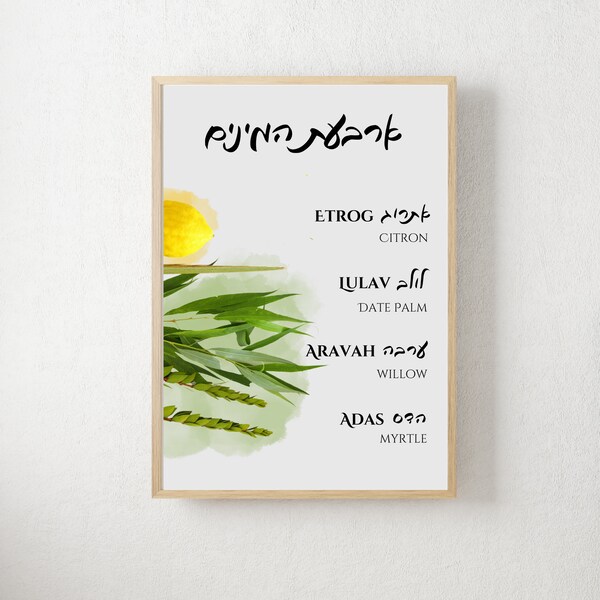 ארבעת המינים
ETROG אתרוג
CITRON
LULAV לולב
DATE PALM
ARAVAH ערבה
WILLOW
ADAS הדס
MYRTLE